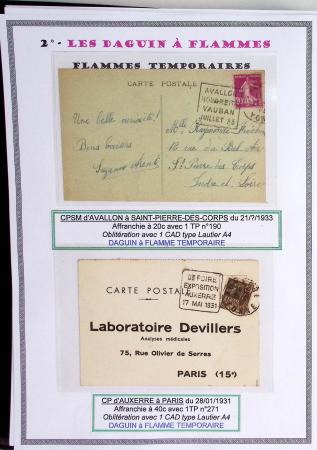 2°- LES DAGUIN À FLAMMES
FLAMMES TEMPORAIRES
CARTE POSTALE
AVALLON
VAUBAN
JUILLET 33
Une belle
Bons baisers
Suzanne
Mlle Raymonde
St Pierre des Corps
Indre et Loire
CPSM d'AVALLON à SAINT-PIERRE-DES-CORPS du 21/?/1933
Affranchie à 20c avec 1 TP n°190
Oblitération avec 1 CAD type Lautier A4
DAGUIN à FLAMME TEMPORAIRE
CARTE POSTALE
FOIRE
EXPOSITION
AUXERRE
17 MAI 1931
Laboratoire Devillers
Analyses médicales
75, Rue Olivier de Serres
PARIS (15e)
CP d'AUXERRE à PARIS du 28/01/1931
Affranchie à 40c avec 1TP n°271
Oblitération avec 1 CAD type Lautier A4
DAGUIN à FLAMME TEMPORAIRE